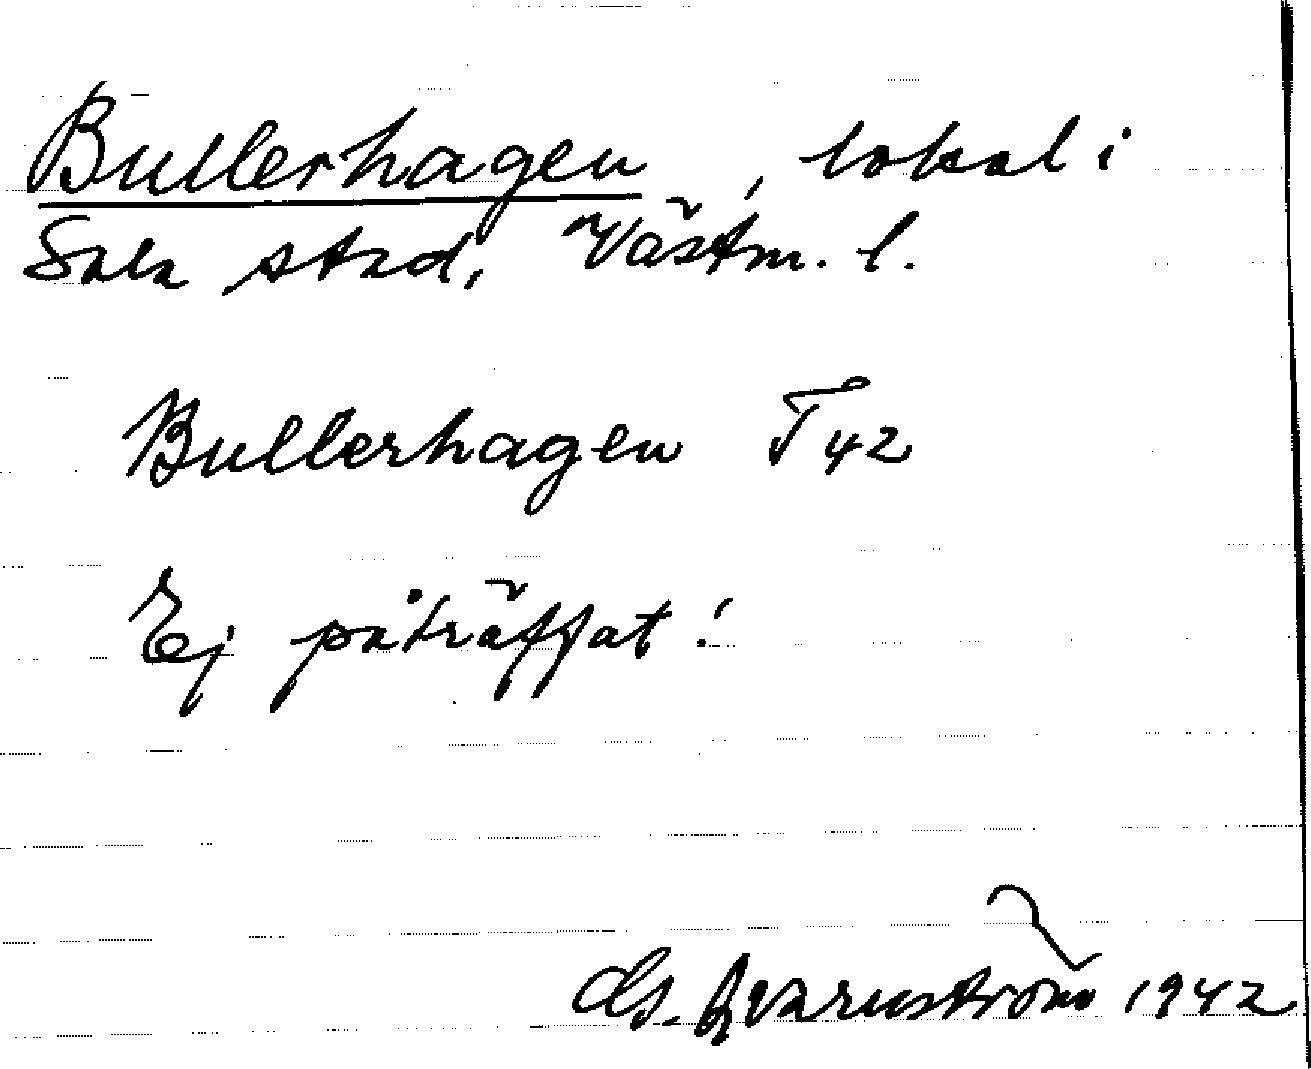 Bullerhagen, lokal i
Sala stad, Västm. l.
Bullerhagen T 42
Ej påträffat!
Qvarnström 1942